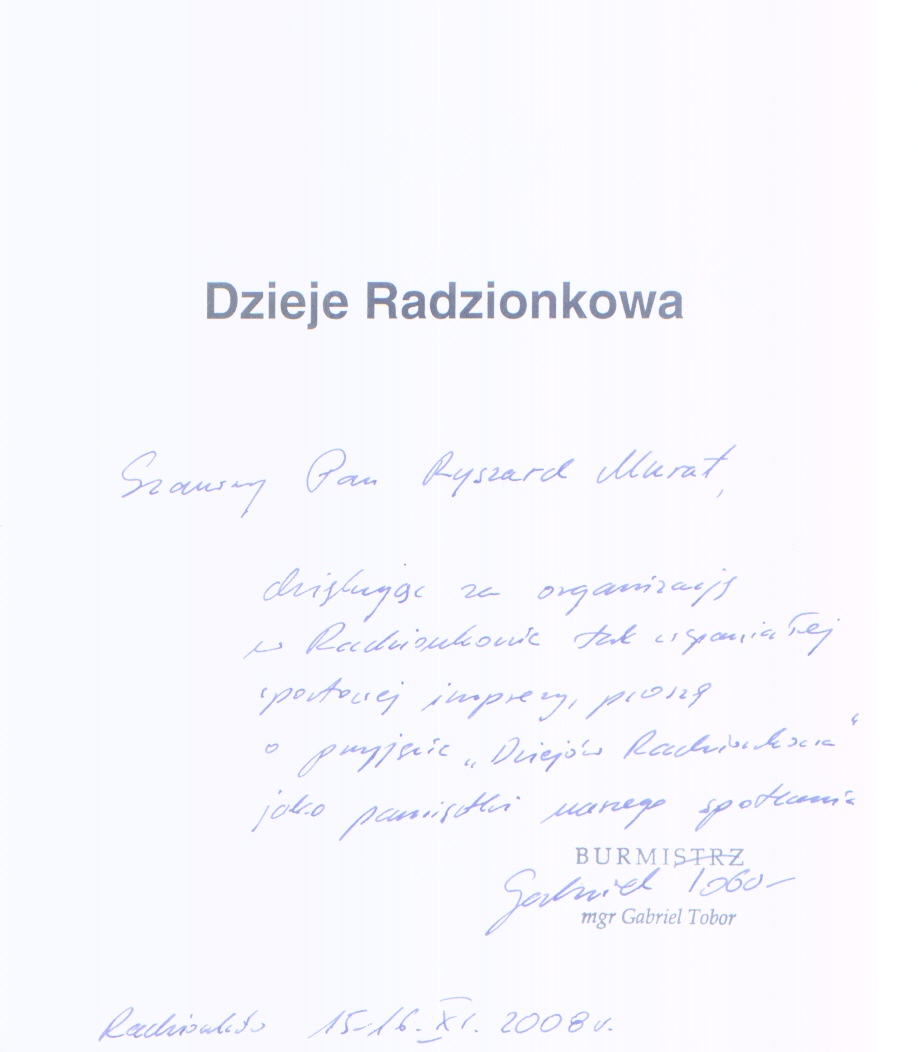 Dzieje Radzionkowa
Szanowny Pan Ryszard Murat,
dziękując za organizację
w Radzionkowie tak wspaniałej
sportowej imprezy, proszę
o przyjęcie „Dziejów Radzionkowa”
jako pamiątki naszego spotkania
BURMISTRZ
Gabriel Tobor
mgr Gabriel Tobor
Radzionków 15-16.XI.2008r.